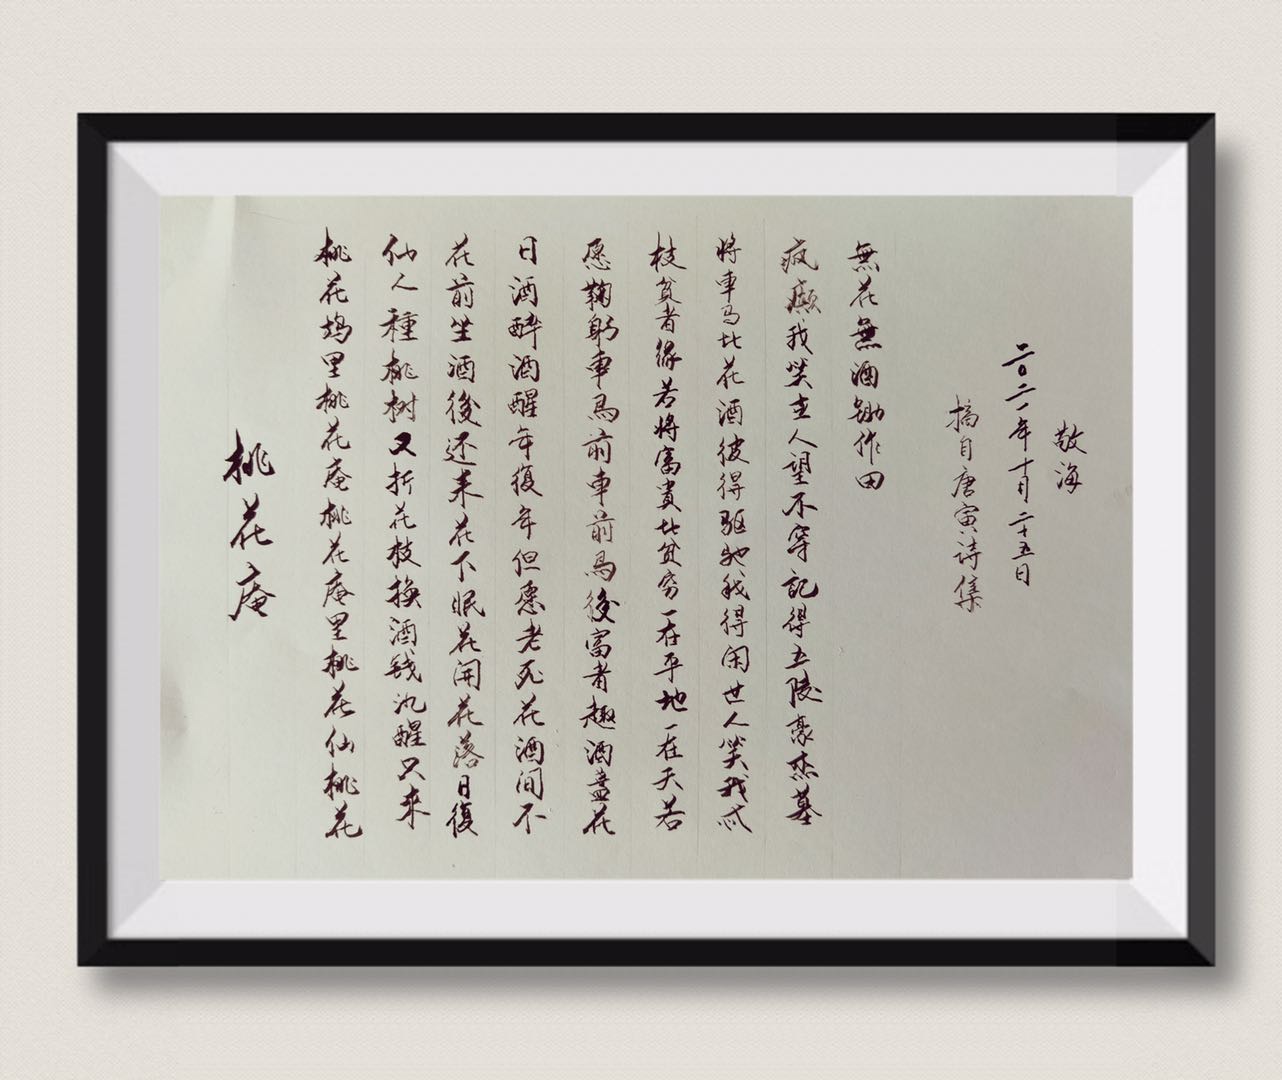 桃花庵
桃花塢里桃花庵桃花庵里桃花仙桃花
仙人種桃树又折花枝換酒钱氿醒只来
花前坐酒後还来花下眠花開花落日復
日酒醉酒醒年復年但愿老死花酒间不
愿鞠躬車馬前車前馬後富者趣酒盞花
枝貧者缘若将富貴比贫穷一在平地一在天若
将車马比花酒彼得驱驰我得闲世人笑我忒
疯癫我笑人望不穿記得五陵豪杰墓
無花無酒锄作田
摘自唐寅詩集
二〇二一年十月二十五日
敬海